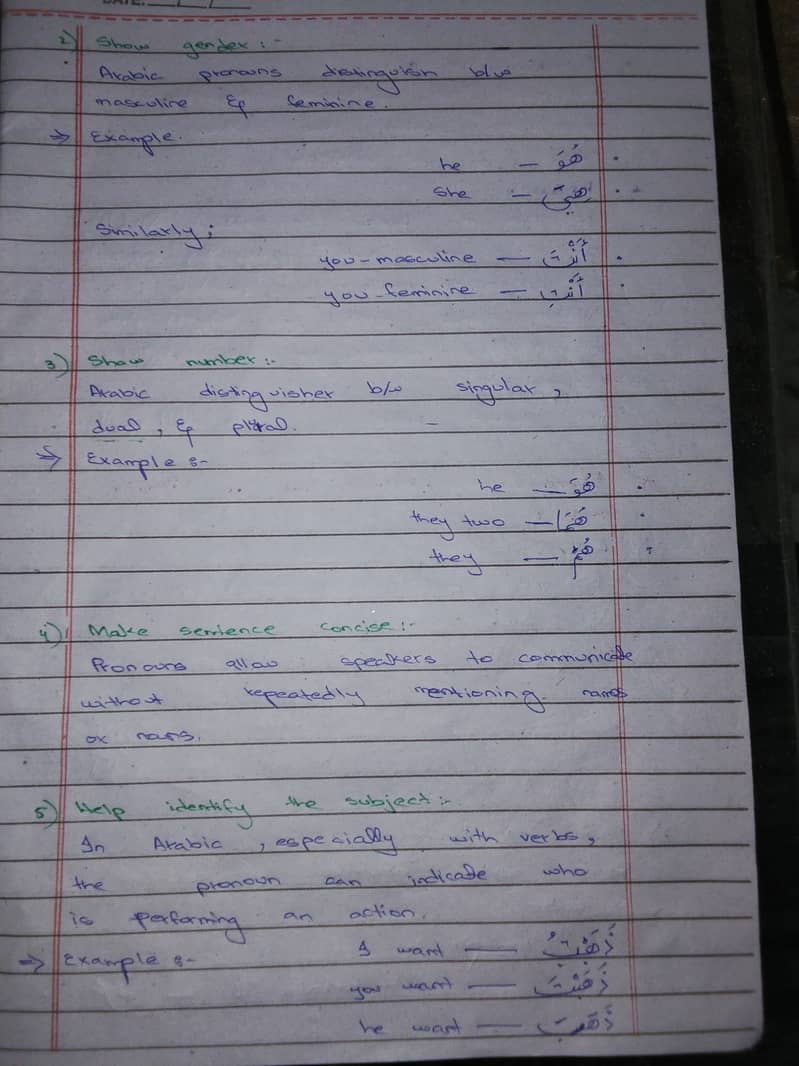 DATE: __/__/__
2) Show gender :-
Arabic pronouns distinguish b/w
masculine & feminine.
=> Example.
he — هُوَ .
She — هِيَ .
Similarly;
you-masculine — أَنْتَ .
you-feminine — أَنْتِ .
3) Show number :-
Arabic distinguisher b/w singular,
dual, & plural.
=> Example :-
he — هُوَ .
they two — هُمَا .
they — هُمْ .
4) Make sentence concise :-
Pronouns allow speakers to communicate
without repeatedly mentioning names
or nans.
5) Help identify the subject :-
In Arabic, especially with verbs,
the pronoun can indicate who
is performing an action.
=> Example :- I want — ذَهَبْتُ
you want — ذَهَبْتَ
he want — ذَهَبَ